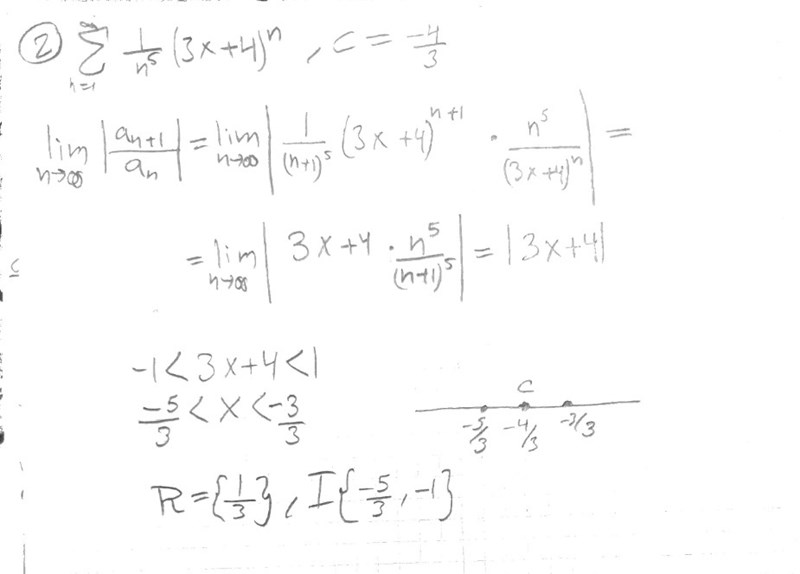 ② ∞ ∑ n=1 1/n⁵ (3x+4)ⁿ , C = -4/3
lim n→∞ |aₙ₊₁/aₙ| = lim n→∞ |1/(n+1)⁵ (3x+4)ⁿ⁺¹ · n⁵/(3x+4)ⁿ| =
= lim n→∞ |3x+4 · n⁵/(n+1)⁵| = |3x+4|
-1 < 3x+4 < 1
-5/3 < x < -3/3
C
-5/3 -4/3 -3/3
R = {1/3} , I{-5/3, -1}